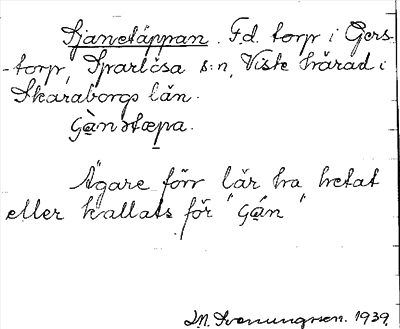 Sjanetäppan. F.d. torp i Gers-
torp, Sparlösa s:n, Viste härad i
Skaraborgs län.
Ägare förr lär ha hetat
eller kallats för "Gán"
M. Svenungsson. 1939.